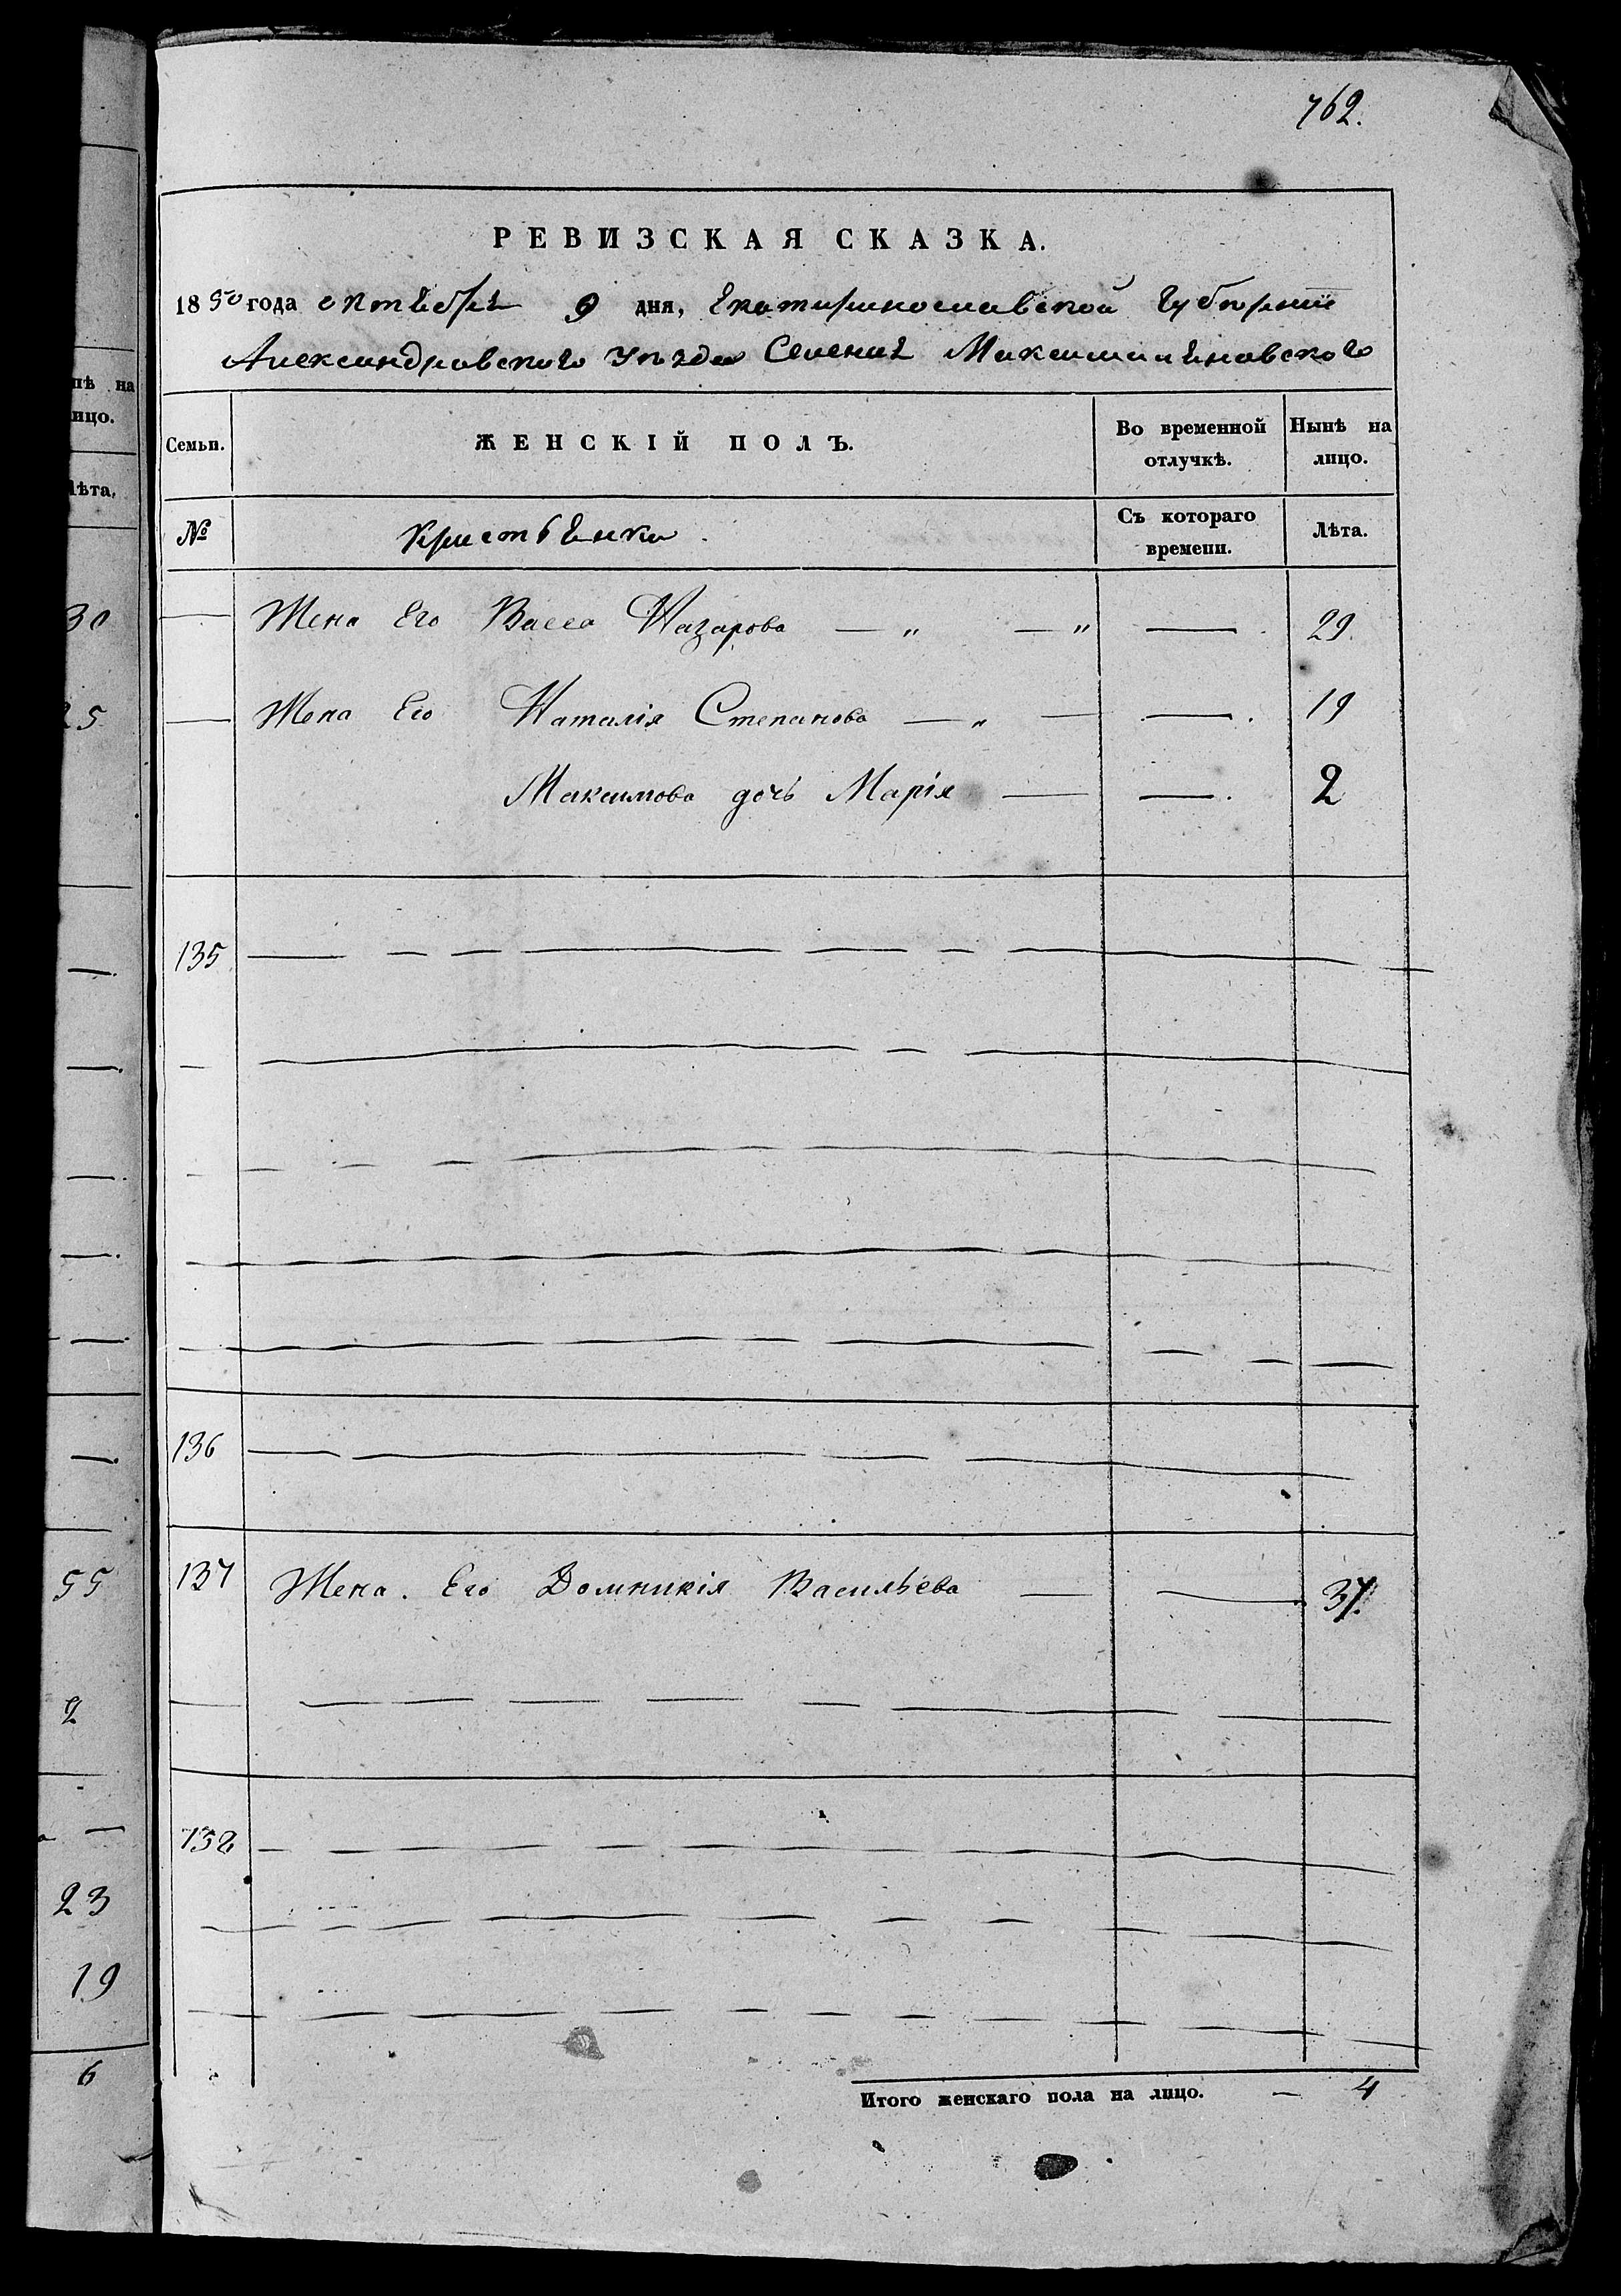 762.
РЕВИЗСКАЯ СКАЗКА.
1850 года октября 9 дня, Екатеринославской Губернии
Александровского Уезда Селения Максимилияновского
Семьи.
ЖЕНСКІЙ ПОЛЪ.
Во временной отлучкѣ.
Нынѣ на лицо.
№
Крестьянки
Съ котораго времени.
Лѣта.
— Жена Его Васса Назарова — „ — „ — 29.
— Жена Его Наталія Степанова — „ — — . 19
Максимова дочь Марія — — . 2
135
136
137 Жена. Его Домникія Васильева — — 37.
138
Итого женскаго пола на лицо. — 4
пѣ на
ицо.
лѣта,
30
25
55
2
23
19
6